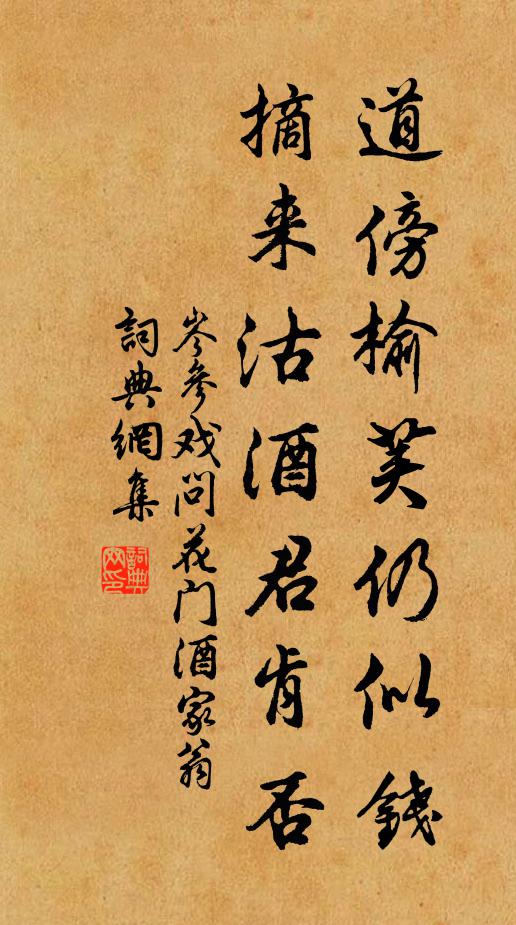 道傍榆荚仍似錢
摘来沽酒君肯否
岑參戏问花门酒家翁
詞典網集
詞典网印